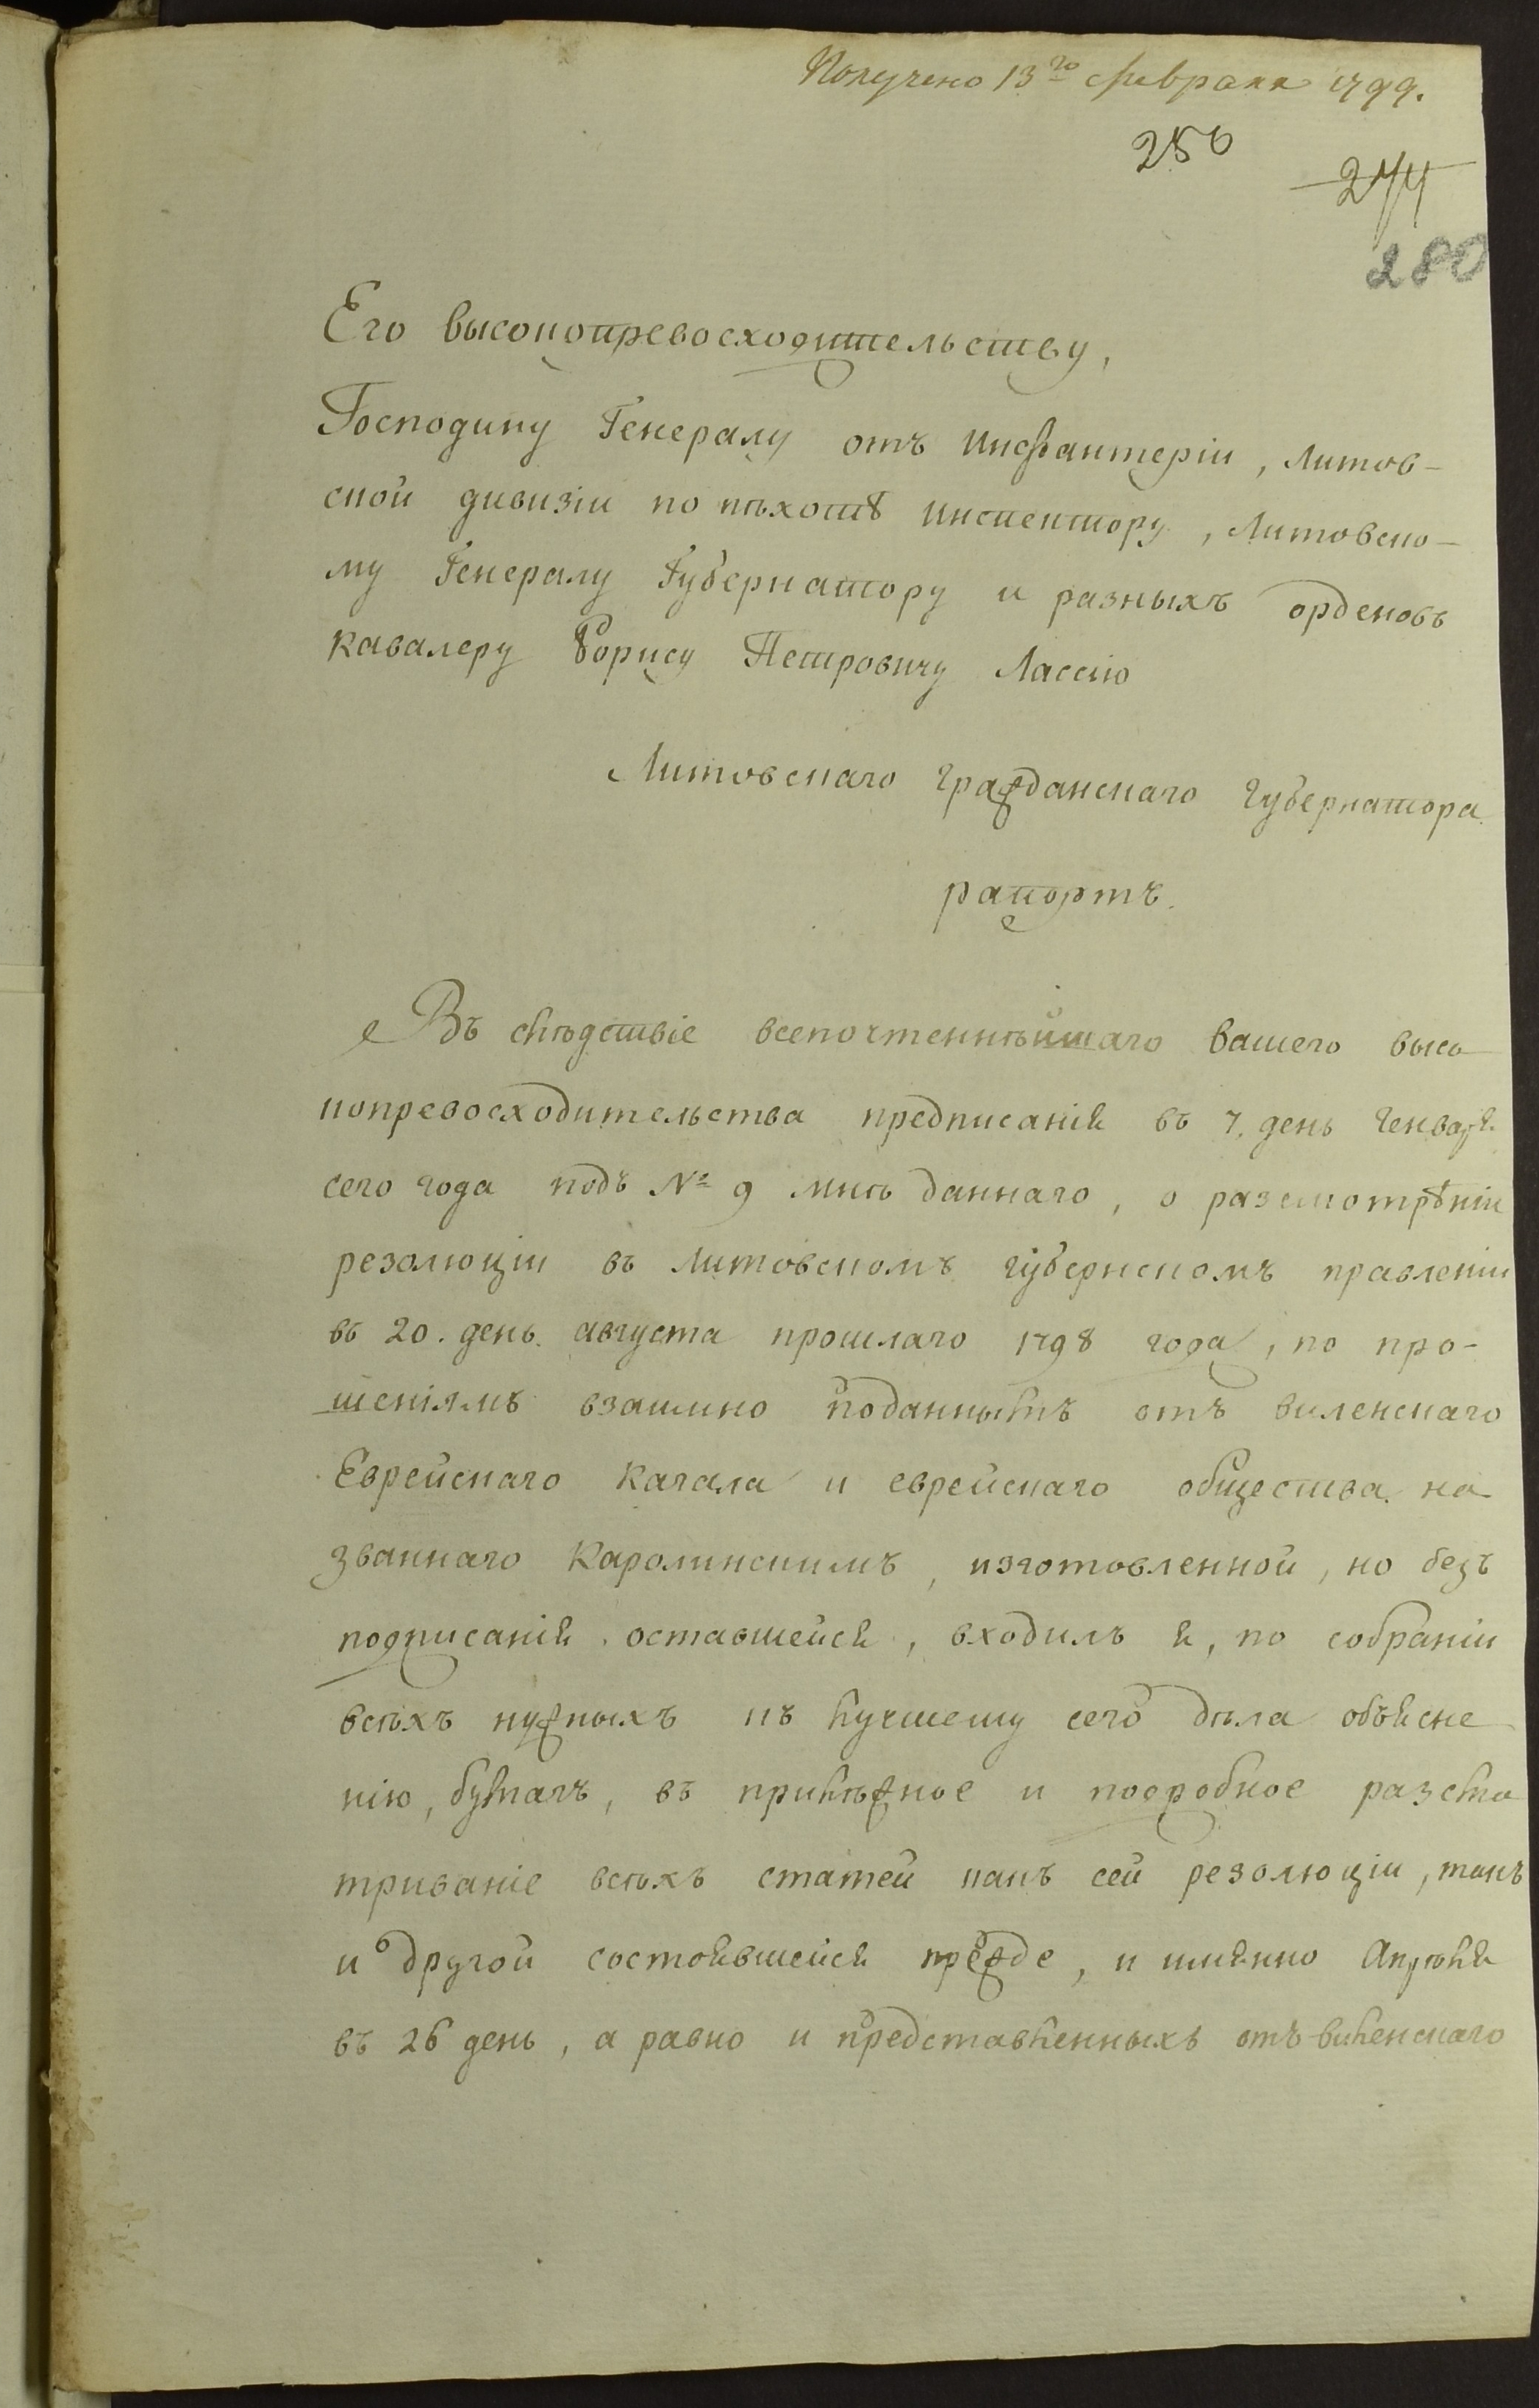 Получено 13го февраля 1799.
256
274
280
Его высокопревосходительству,
Господину Генералу отъ Инфантеріи, Литов-
ской дивизіи по пѣхотѣ инспектору, Литовско-
му Генералу Губернатору и разныхъ орденовъ
кавалеру Борису Петровичу Лассію
Литовскаго гражданскаго губернатора
рапортъ.
Въ слѣдствіе всепочтеннѣйшаго вашего высо-
копревосходительства предписанія въ 7. день Генваря
сего года подъ № 9 мнѣ даннаго, о разсмотрѣніи
резолюціи въ Литовскомъ губернскомъ правленіи
въ 20. день августа прошлаго 1798 года, по про-
шеніямъ взаимно поданнымъ отъ виленскаго
Еврейскаго кагала и еврейскаго общества на
званнаго Каролинскимъ, изготовленной, но безъ
подписанія оставшейся, входилъ я, по собраніи
всѣхъ нужныхъ къ лучшему сего дѣла объясне
нію, бумагъ, въ прилѣжное и подробное разсма
триваніе всѣхъ статей какъ сей резолюціи, такъ
и другой состоявшейся прежде, и имянно Апрѣля
въ 26 день, а равно и представленныхъ отъ виленскаго